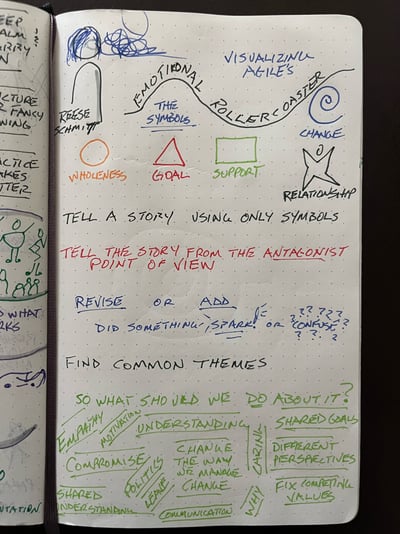 EEP
ALM
ARRY
ON
ICTURE
R FANCY
NING
ACTICE
AKES
TTER
D WHAT
RKS
NTATION
VISUALIZING
AGILE'S
EMOTIONAL
ROLLERCOASTER
REESE
SCHMITT
THE
SYMBOLS
CHANGE
WHOLENESS
GOAL
SUPPORT
RELATIONSHIP
TELL A STORY USING ONLY SYMBOLS
TELL THE STORY FROM THE ANTAGONIST
POINT OF VIEW
REVISE OR ADD
? ? ? ? ?
DID SOMETHING SPARK! OR CONFUSE?
? ? ?
FIND COMMON THEMES
SO WHAT SHOULD WE DO ABOUT IT?
EMPATHY
MOTIVATION
UNDERSTANDING
CARING
SHARED GOALS
COMPROMISE
POLITICS
LEAVE
CHANGE
THE WAY
WE MANAGE
CHANGE
DIFFERENT
PERSPECTIVES
SHARED
UNDERSTANDING
COMMUNICATION
WHY
FIX COMPETING
VALUES